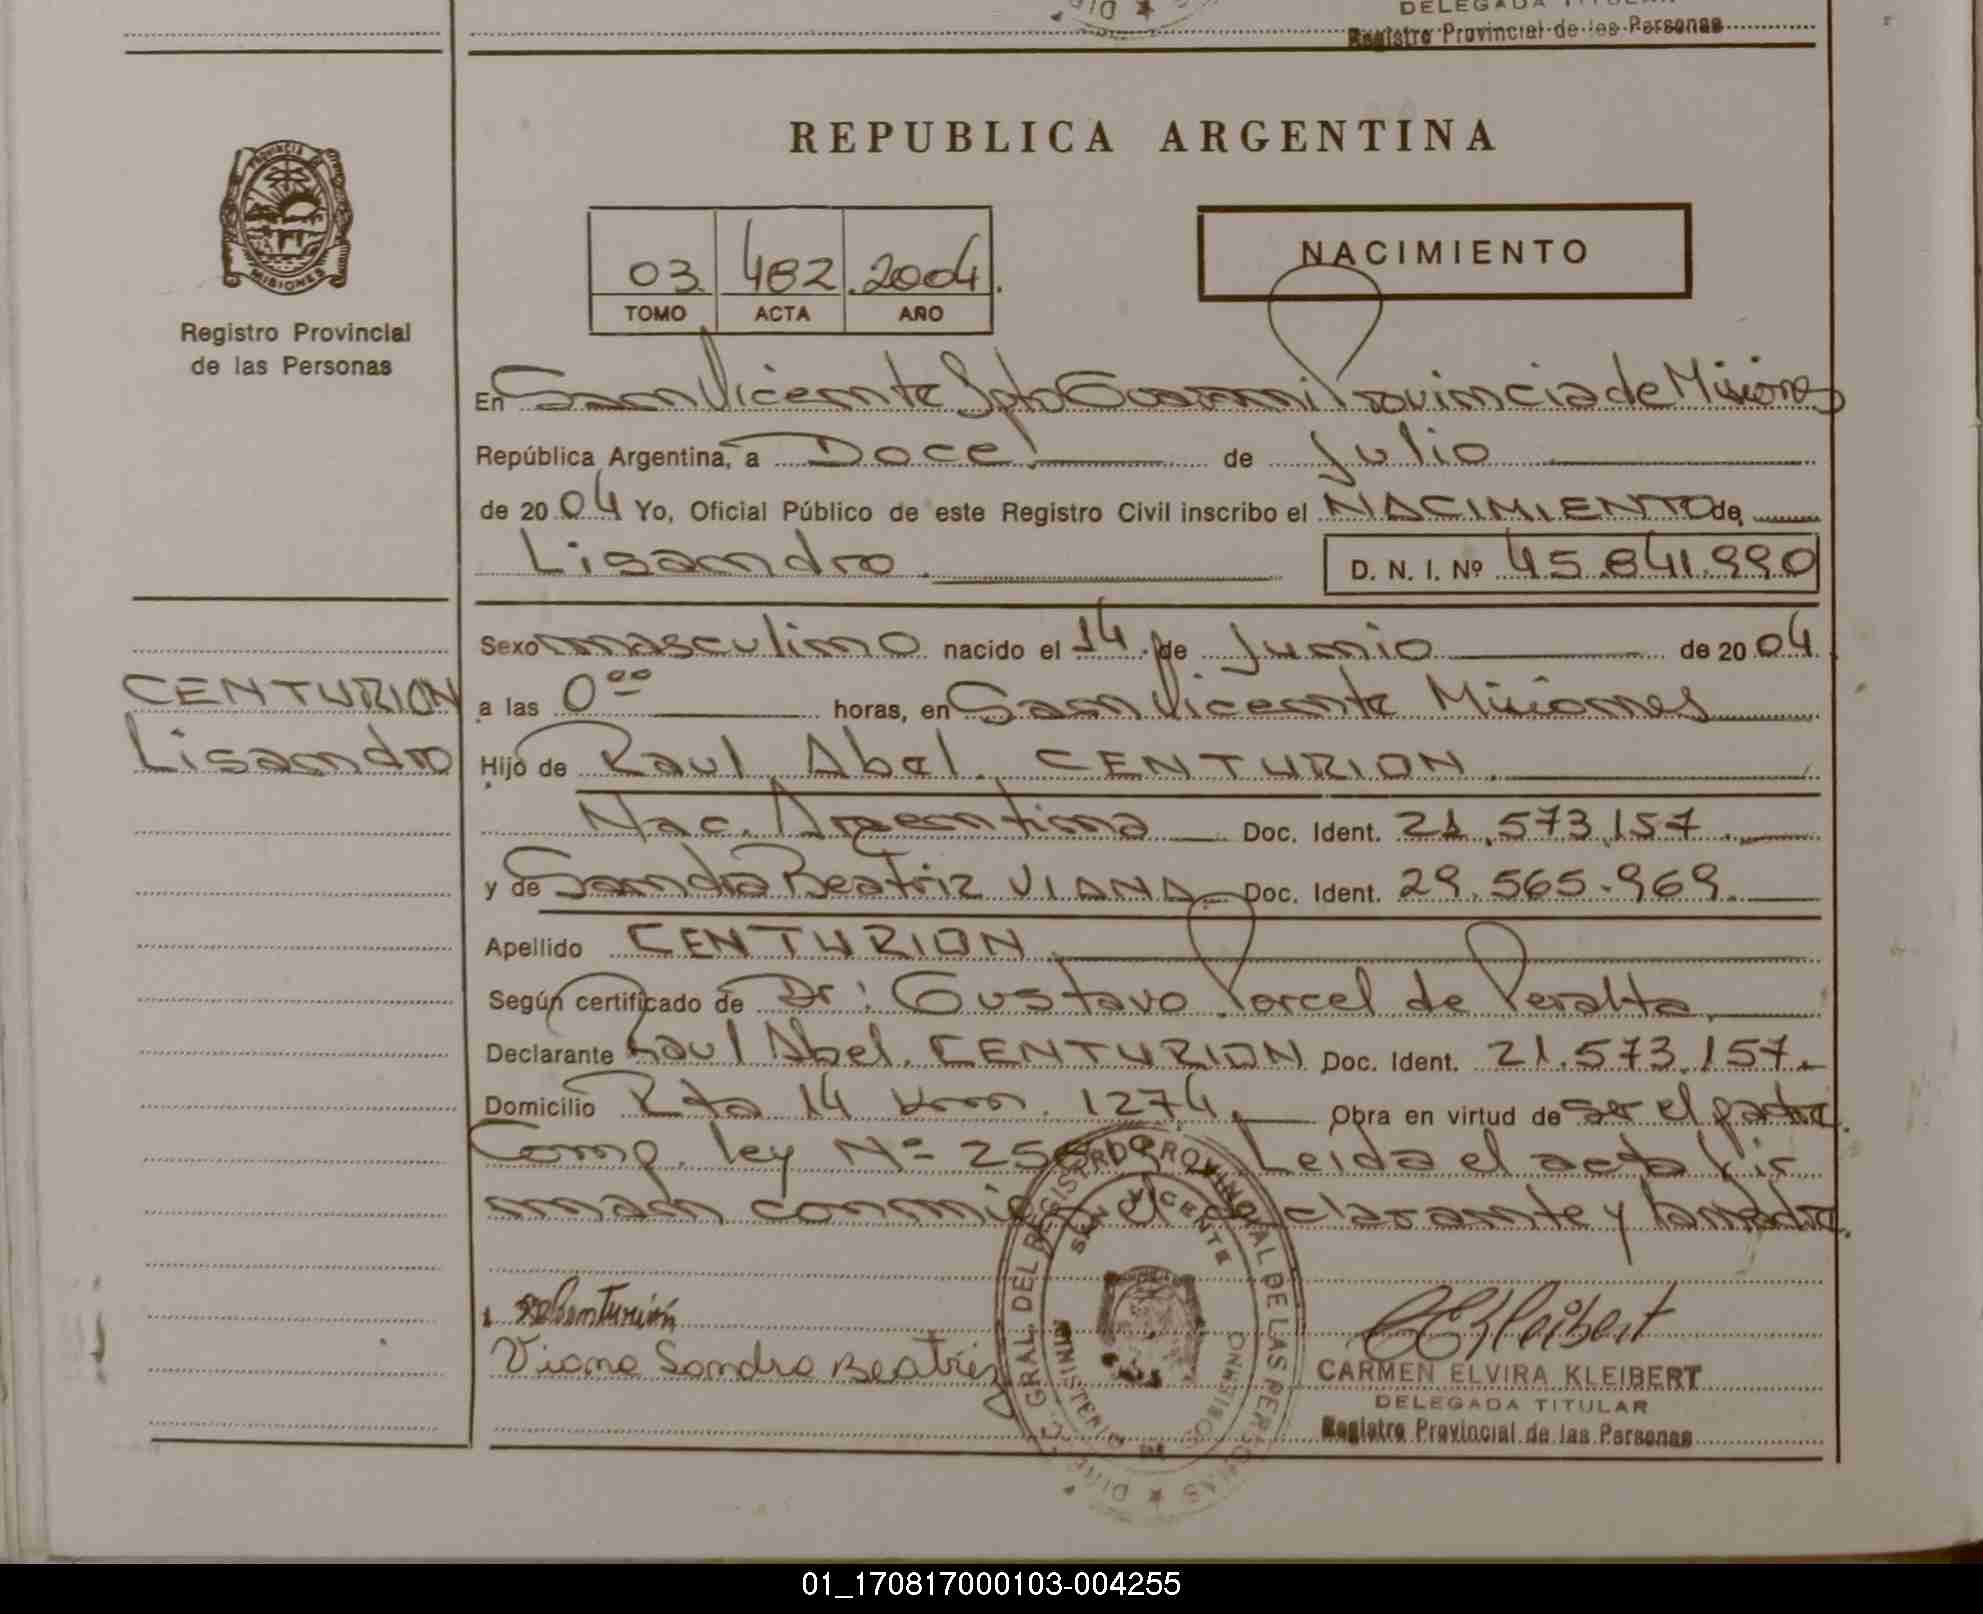 DELEGADA TITULAR
Registro Provincial de las Personas
REPUBLICA ARGENTINA
PROVINCIA DE
MISIONES
Registro Provincial
de las Personas
03 482 2004
TOMO ACTA AÑO
NACIMIENTO
En San Vicente Dpto Guaraní Provincia de Misiones
República Argentina, a Doce de Julio
de 2004 Yo, Oficial Público de este Registro Civil inscribo el NACIMIENTO de
Lisandro D. N. I. Nº 45.841.990
Sexo masculino nacido el 14 de Junio de 2004
CENTURION
Lisandro
a las 0 00 horas, en San Vicente Misiones
Hijo de Raul Abel CENTURION
Nac. Argentina Doc. Ident. 21.573.157
y de Sandra Beatriz VIANA Doc. Ident. 29.565.969.
Apellido CENTURION
Según certificado de Dr: Gustavo Porcel de Peralta
Declarante Raul Abel CENTURION Doc. Ident. 21.573.157.
Domicilio Rta 14 Km 1274 Obra en virtud de ser el padre.
Comp. ley Nº Leida el acta fir
man conmigo el declarante y la madre.
RACenturión
Viana Sandra Beatriz
DIREC. GRAL. DEL REGISTRO PROVINCIAL DE LAS PERSONAS
SAN VICENTE
MINISTERIO DE GOBIERNO
CEKleibert
CARMEN ELVIRA KLEIBERT
DELEGADA TITULAR
Registro Provincial de las Personas
01_170817000103-004255